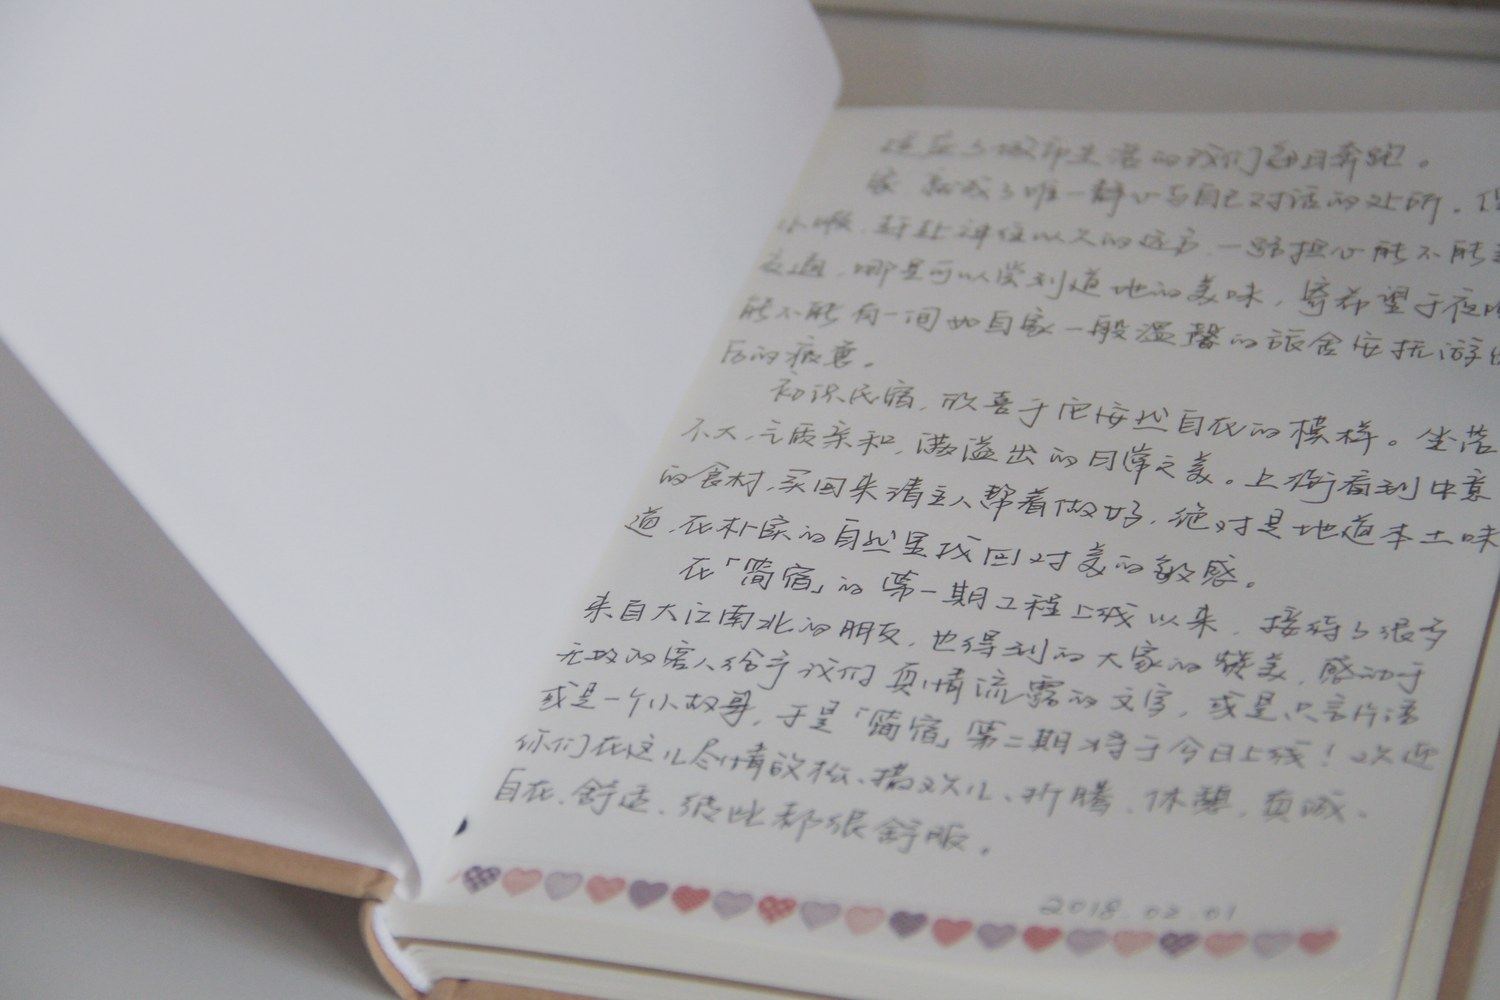 适应了城市生活的我们每日奔跑。
家就成了唯一静心与自己对话的处所。
小憩,奔赴神往以久的远方,一路担心能不能
交通,哪里可以尝到道地的美味,寄希望于夜晚
能不能有一间如自家一般温馨的旅舍安抚游
后的疲惫。
初识民宿,欣喜于它安然自在的模样。坐落
不大,气质亲和,满溢出的日常之美。上街看到中意
的食材,买回来请主人帮着做好,绝对是地道本土味
道,在朴家的自然里找回对美的敏感。
在「简宿」的第一期工程上线以来,接待了很多
来自大江南北的朋友,也得到的大家的赞美,感动于
无数的客人给予我们真情流露的文字,或是只言片语
或是一个小故事,于是「简宿」第二期将于今日上线!欢迎
你们在这儿尽情放松、撒欢儿、折腾、休憩,真诚、
自在、舒适、彼此都很舒服。
2018.02.01